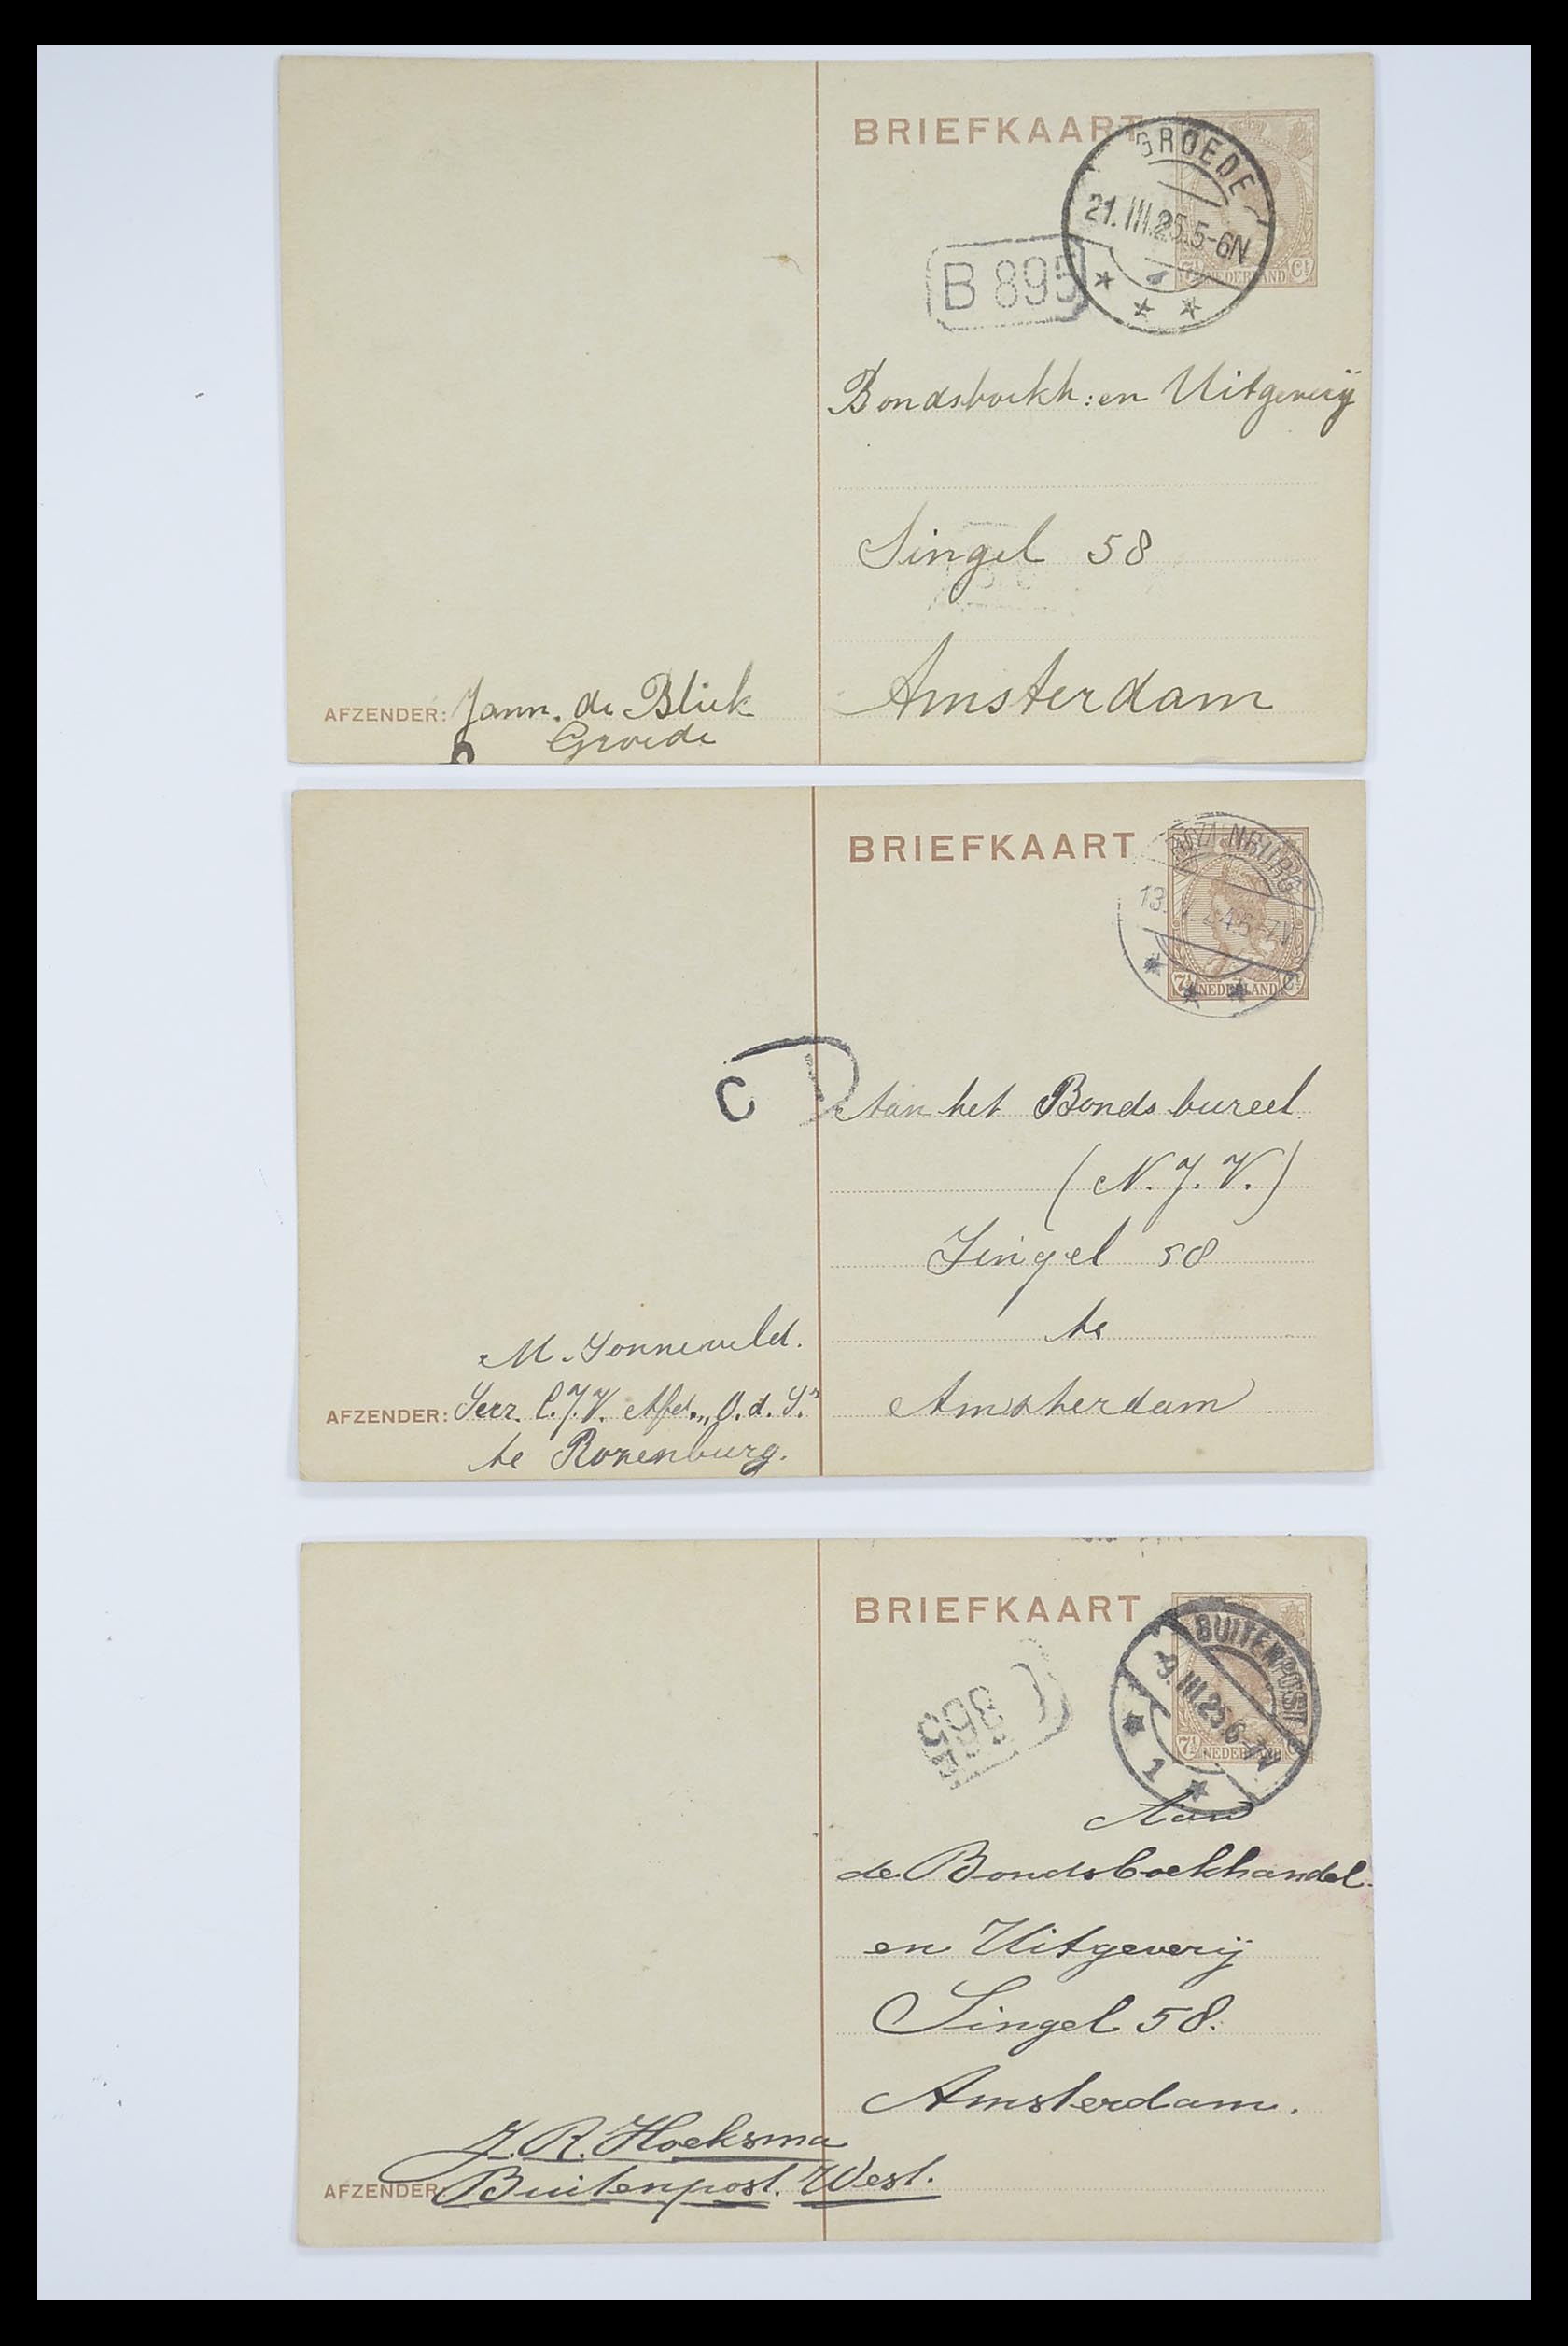 BRIEFKAART
GROEDE
21.III.25.5-6N
7½ NEDERLAND Ct
B 895
Bondsboekh: en Uitgeverij
Singel 58
Amsterdam
AFZENDER: Jann. de Bliek
Groede
BRIEFKAART
ROZENBURG
7½ NEDERLAND Ct
C
Aan het Bondsbureel
(N.J.V.)
Singel 58
te
Amsterdam
M. Sonneveld.
AFZENDER: Secr. C.J.V. Afd. „O.d.S."
te Rozenburg.
BRIEFKAART
BUITENPOST
9.III.25.6-7N
1
7½ NEDERLAND
895
Aan
de Bondsboekhandel
en Uitgeverij
Singel 58.
Amsterdam.
J. R. Hoeksma
AFZENDER Buitenpost. West.